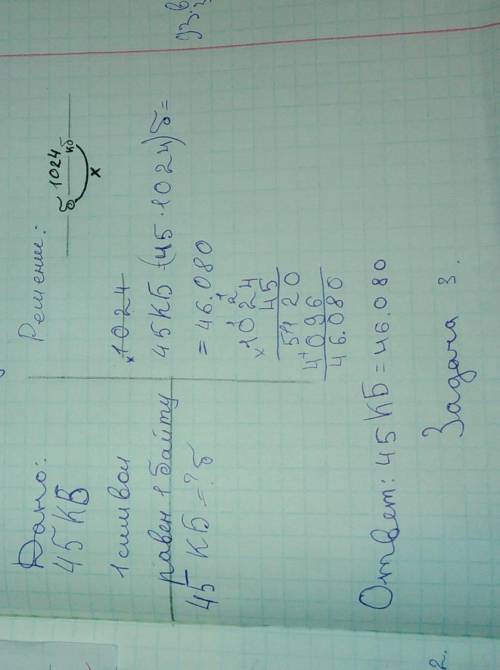 Дано:
45 КБ
1 символ
равен 1 байту
45 КБ = ? б
Решение:
б 1024 кб
x
x1024
45КБ = (45 · 1024) б =
= 46.080
1 2
x1024
45
5120
4096
46.080
Ответ: 45 КБ = 46.080
Задача 3.
2.